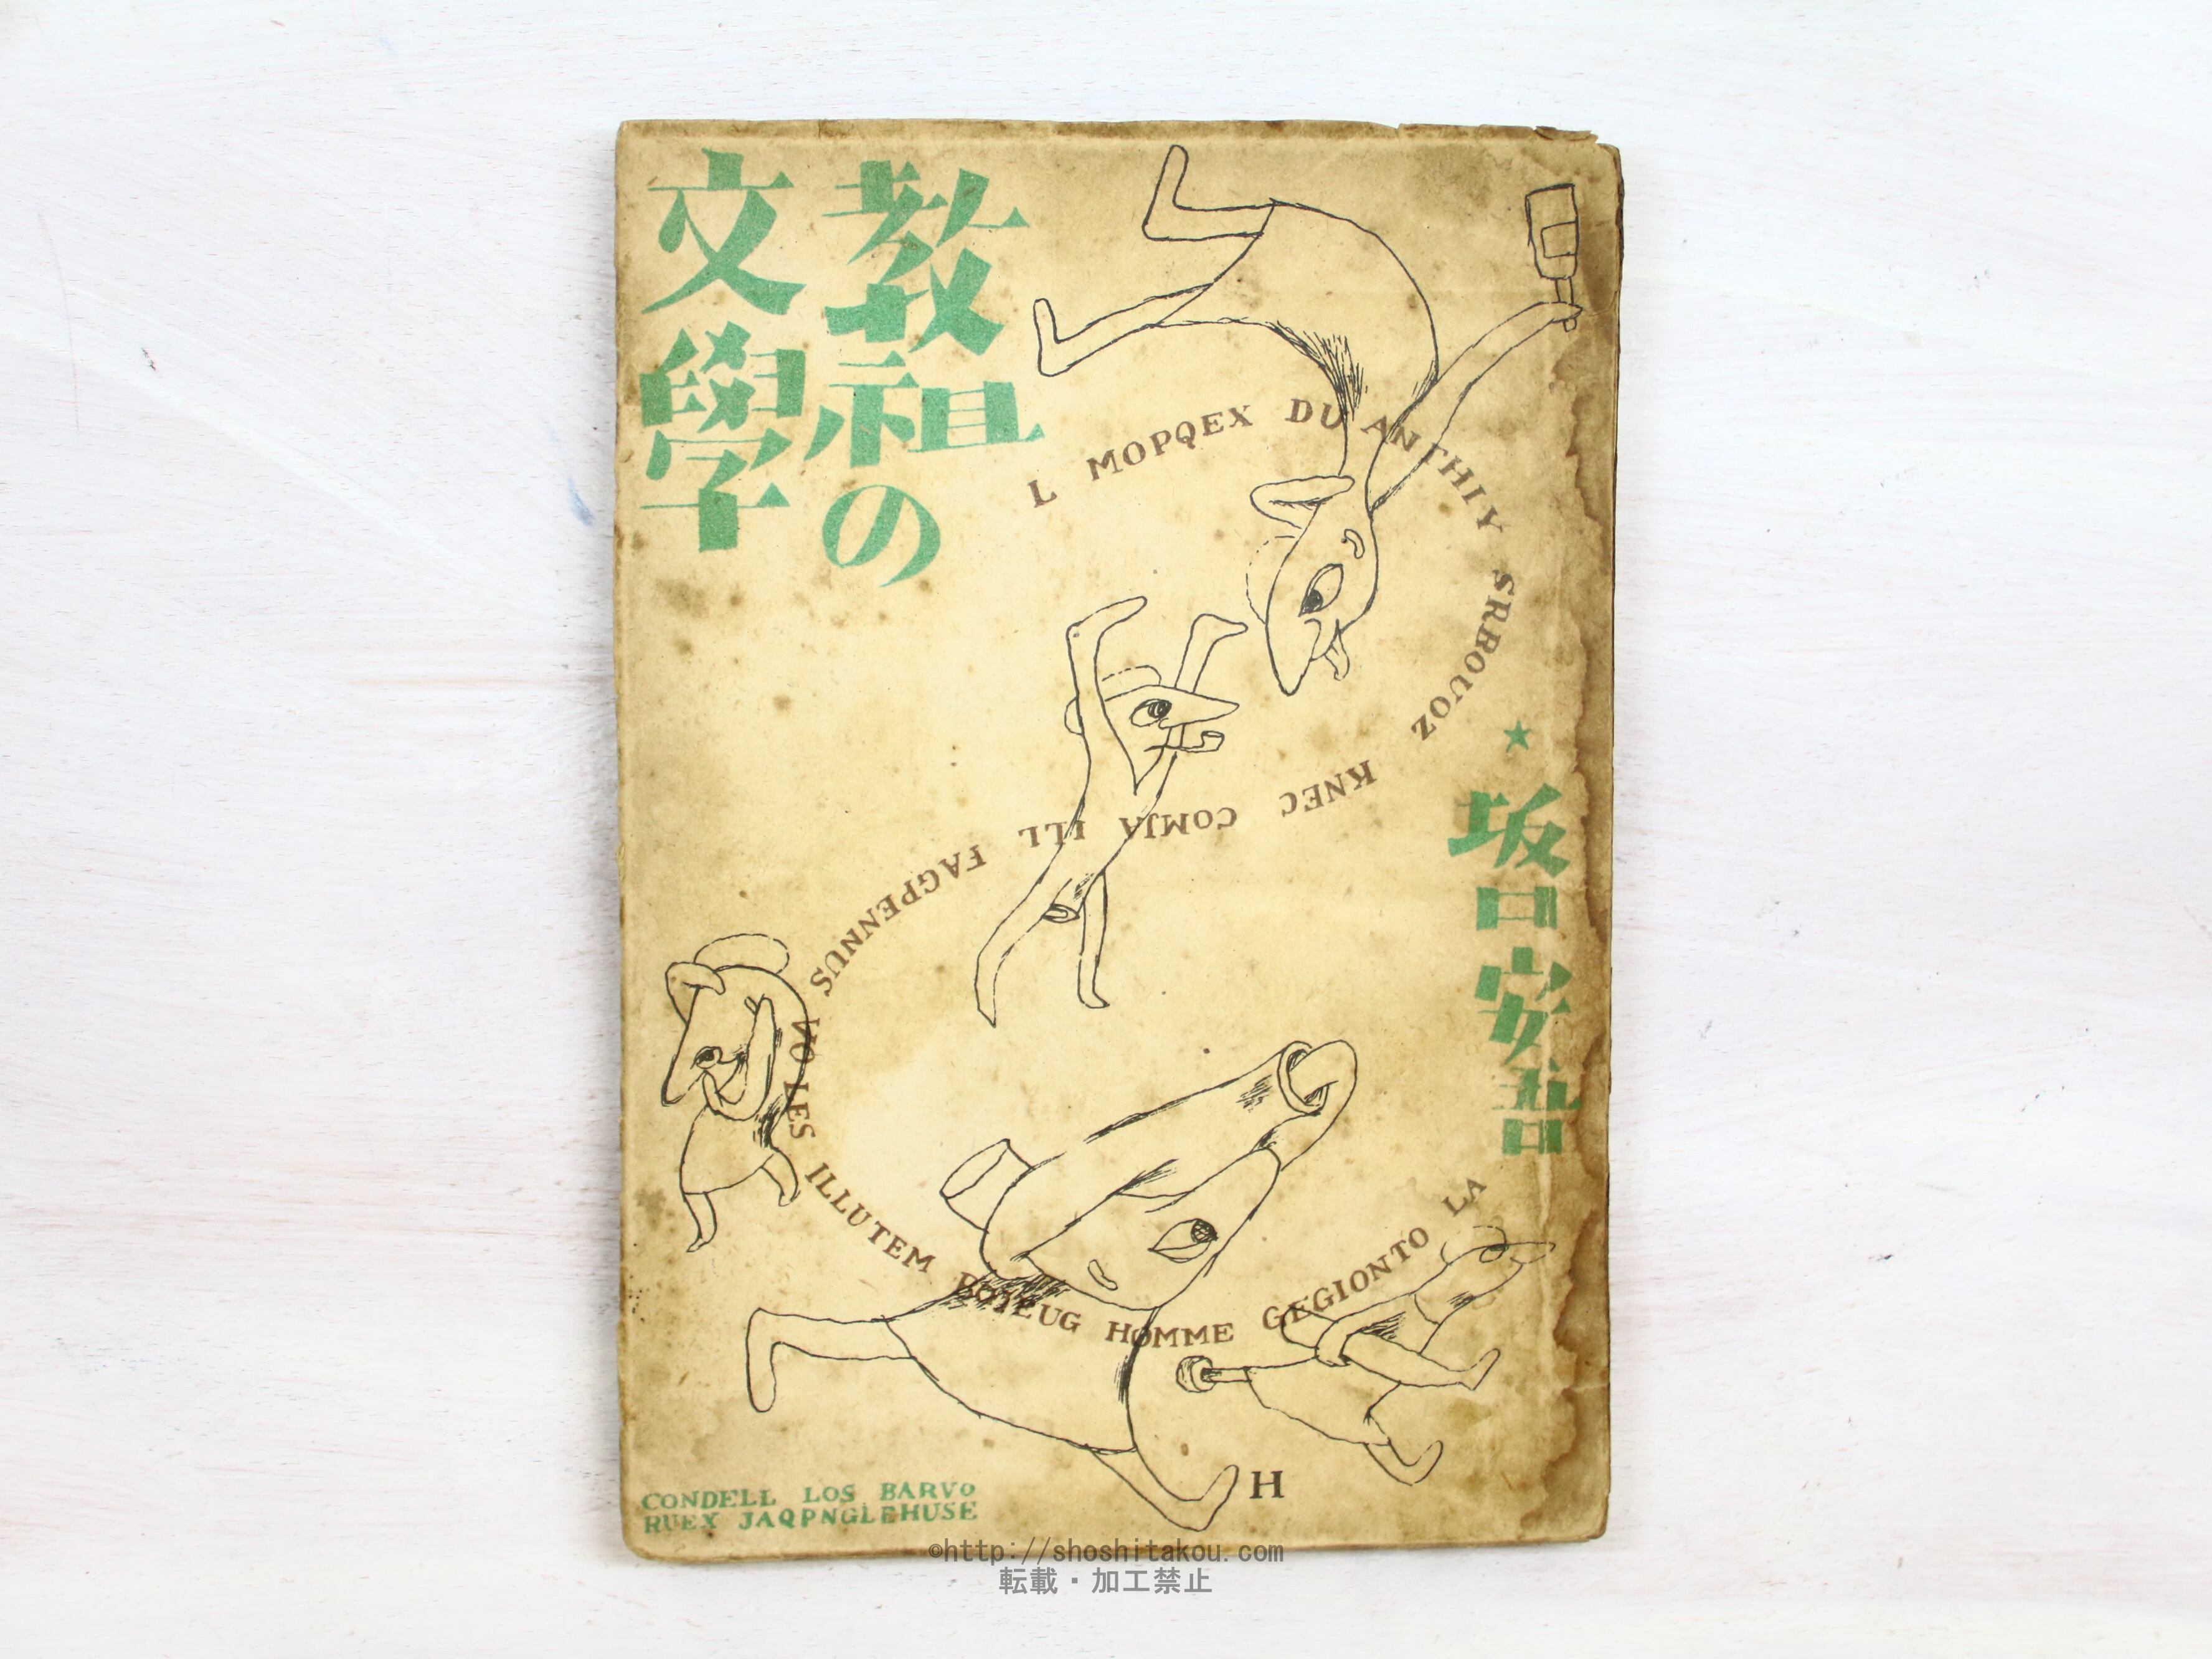 教祖の
文學
L MOPQEX DU ANTHIY SRBOUOZ
KNEC COMJA ILL FAGPENNUS
VO LES ILLUTEM HOMME GEGIONTO LA
★ 坂口安吾
H
CONDELL LOS BARVO
RUEX JAQPNGLEHUSE
©http://shoshitakou.com
転載・加工禁止